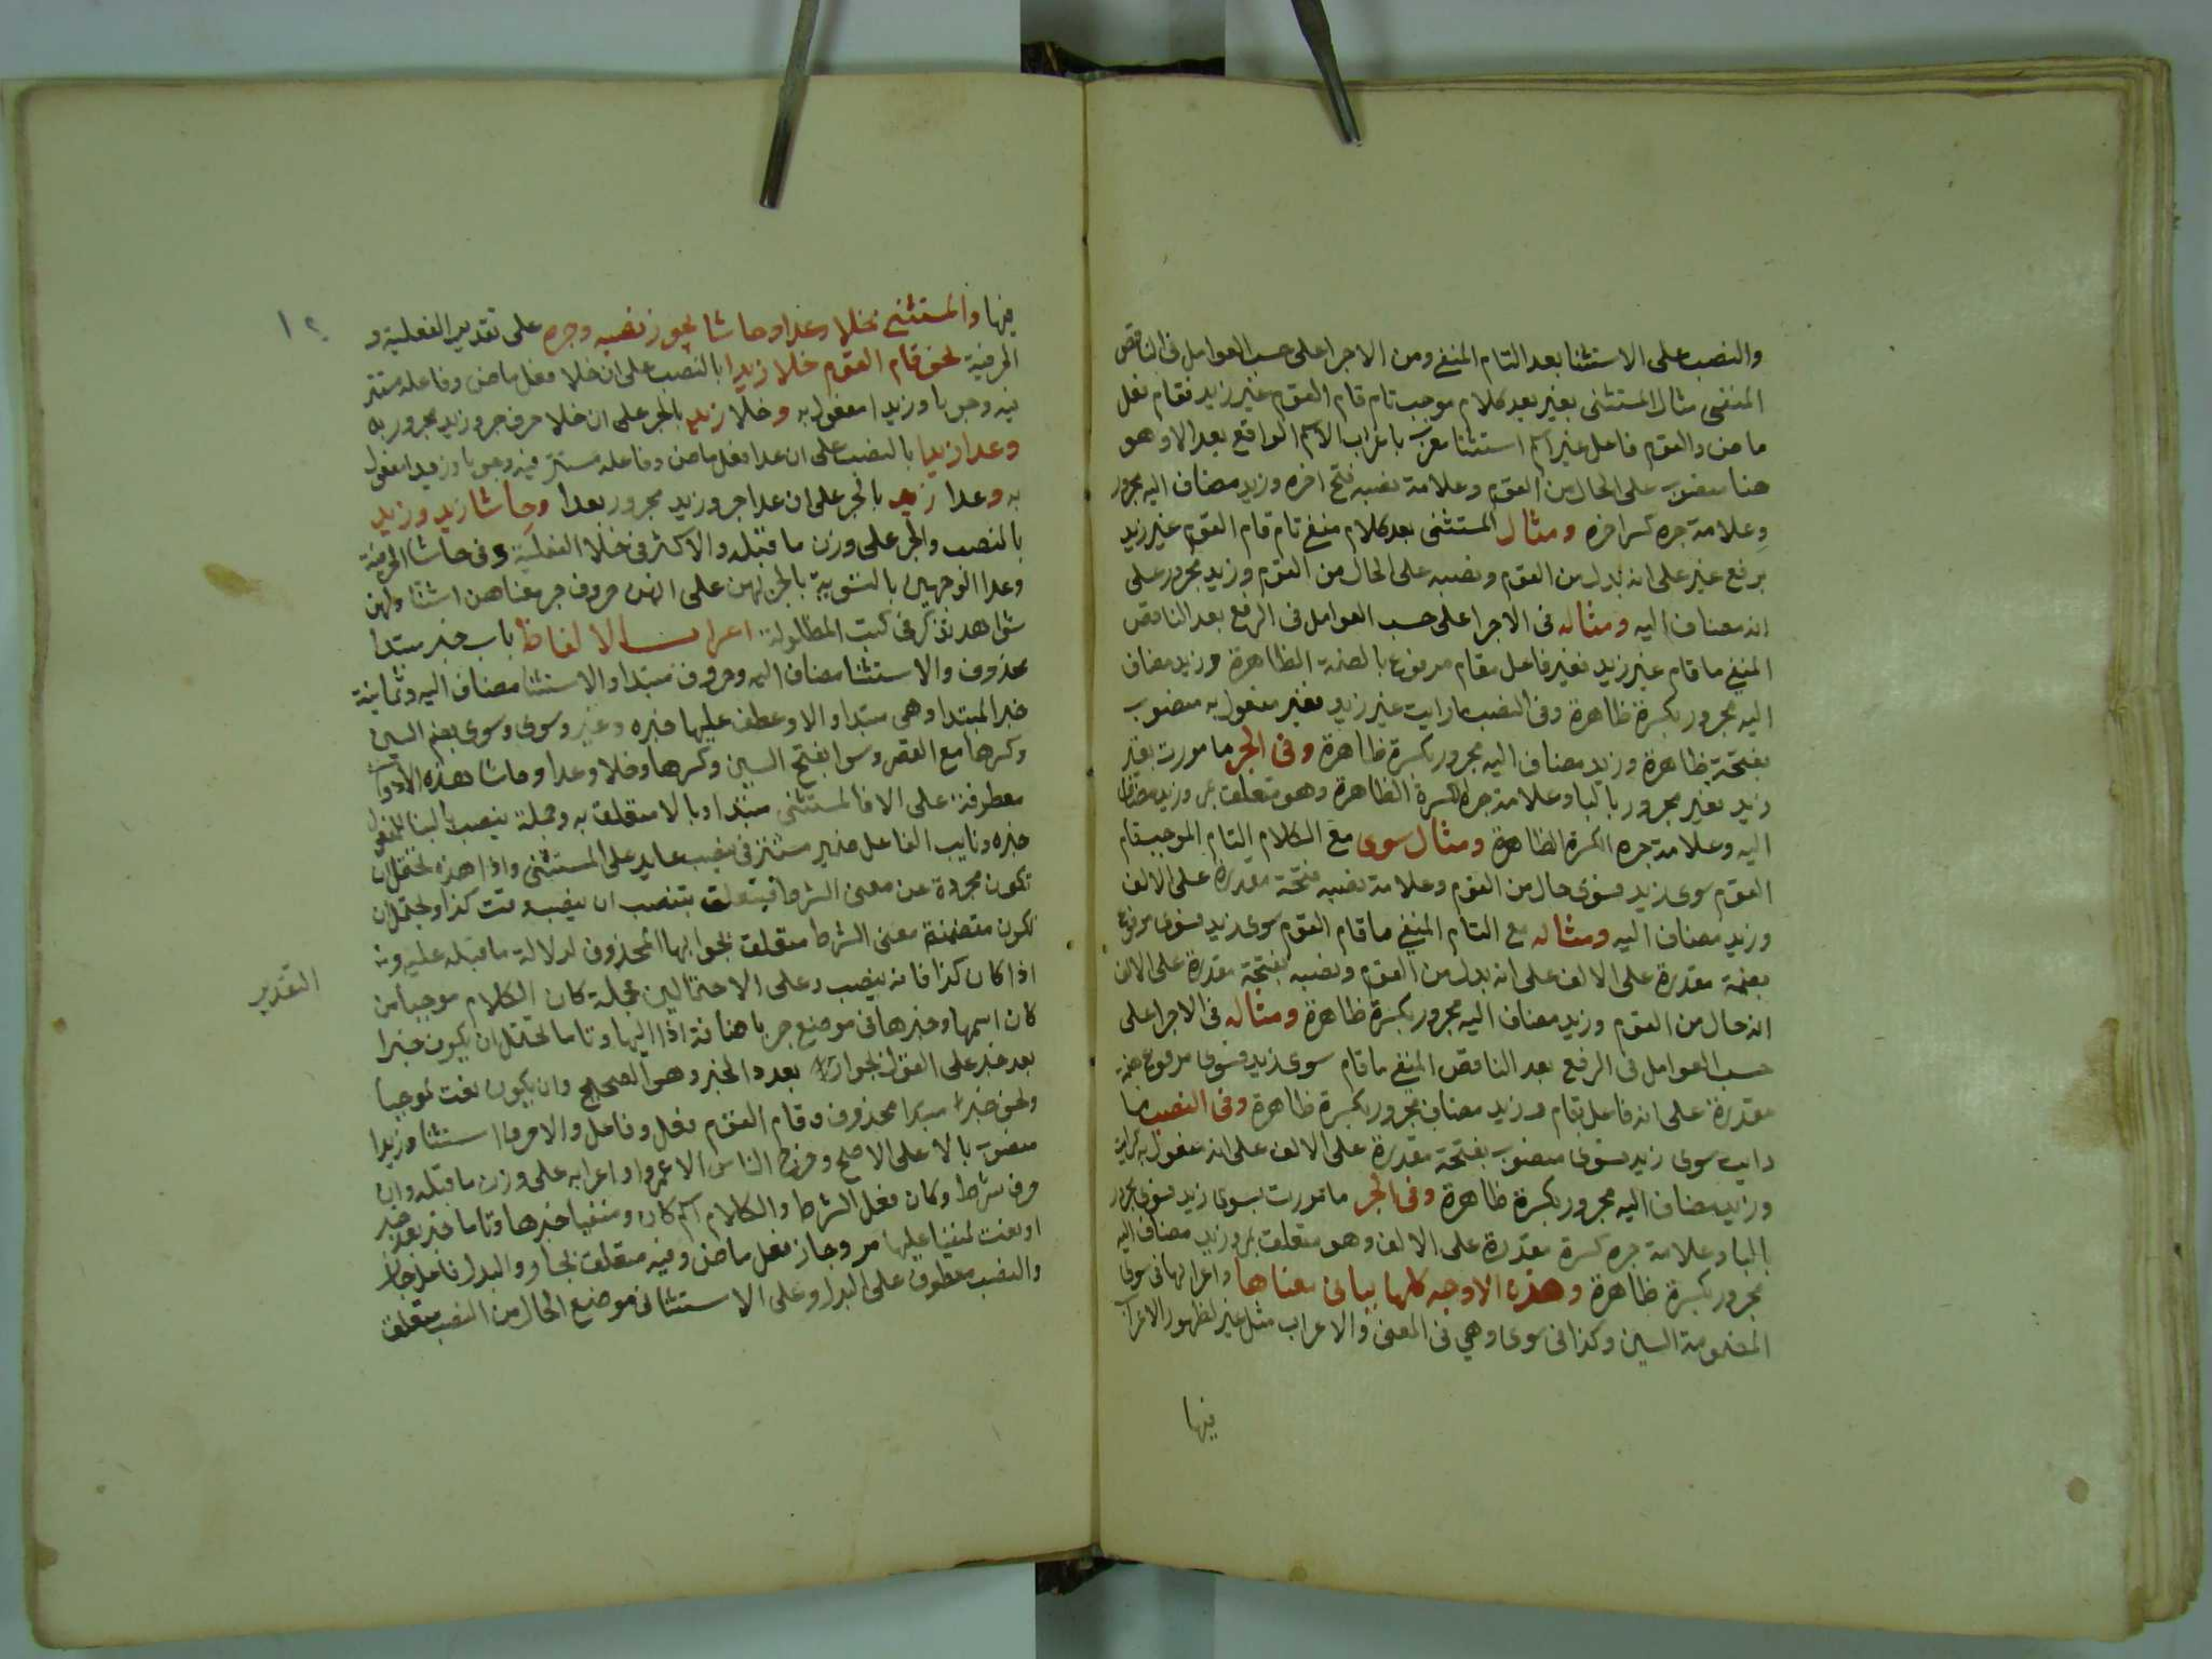 والنصب على الاستثنا بعد التام المنفي ومن الاجرا على حسب العوامل في الناقص
المنفي مثال المستثنى بغير بعد كلام موجب تام قام القوم غير زيد فقام فعل
ماض والقوم فاعل غير اسم استثنا معرب باعراب الاسم الواقع بعد الا وهو
هنا منصوب على الحال من القوم وعلامة نصبه فتح اخره وزيد مضاف اليه مجرور
وعلامة جره كسر اخره ومثال المستثنى بعد كلام منفي تام قام القوم غير زيد
برفع غير على انه بدل من القوم ونصبه على الحال من القوم وزيد مجرور على
انه مضاف اليه ومثاله في الاجرا على حسب العوامل في الرفع بعد الناقص
المنفي ما قام غير زيد فغير فاعل بقام مرفوع بالضمة الظاهرة وزيد مضاف
اليه مجرور بكسرة ظاهرة وفي النصب ما رايت غير زيد فغير مفعول به منصوب
بفتحة ظاهرة وزيد مضاف اليه مجرور بكسرة ظاهرة وفي الجر ما مررت بغير
زيد فغير مجرور بالبا وعلامة جره الكسرة الظاهرة وهو متعلق بمر وزيد مضاف
اليه وعلامة جره الكسرة الظاهرة ومثال سوى مع الكلام التام الموجب قام
القوم سوى زيد فسوى حال من القوم وعلامة نصبه فتحة مقدرة على الالف
وزيد مضاف اليه ومثاله مع التام المنفي ما قام القوم سوى زيد فسوى مرفوع
بضمة مقدرة على الالف على انه بدل من القوم ونصبه بفتحة مقدرة على الالف
انه حال من القوم وزيد مضاف اليه مجرور بكسرة ظاهرة ومثاله في الاجرا على
حسب العوامل في الرفع بعد الناقص المنفي ما قام سوى زيد فسوى مرفوع بضمة
مقدرة على انه فاعل بقام وزيد مضاف مجرور بكسرة ظاهرة وفي النصب ما
رايت سوى زيد فسوى منصوب بفتحة مقدرة على الالف على انه مفعول به لرايت
وزيد مضاف اليه مجرور بكسرة ظاهرة وفي الجر ما مررت بسوى زيد فسوى مجرور
بالبا وعلامة جره كسرة مقدرة على الالف وهو متعلق بمر وزيد مضاف اليه
مجرور بكسرة ظاهرة وهذه الاوجه كلها بيان معناها واعرابها في سوى
المضمومة السين وكذا في سوى وهي في المعنى والاعراب مثل غير لظهور الاعراب
فيها
فيها والمستثنى بخلا وعدا وحاشا يجوز نصبه وجره على تقدير الفعلية و
الحرفية نحو قام القوم خلا زيدا بالنصب على ان خلا فعل ماض وفاعله مستتر
فيه وجوبا وزيدا مفعول به وخلا زيد بالجر على ان خلا حرف جر وزيد مجرور به
وعدا زيدا بالنصب على ان عدا فعل ماض وفاعله مستتر فيه وجوبا وزيدا مفعول
به وعدا زيد بالجر على ان عدا جر وزيد مجرور بعدا وحاشا زيد وزيد
بالنصب والجر على وزن ما قبله والاكثر في خلا الفعلية وفي حاشا الحرفية
وعدا الوجهين بالتسوية بالجر بهن على انهن حروف جر معناهن استثنا ولهن
شواهد تذكر في كتب المطولة اعراب الالفاظ باب خبر مبتدا
محذوف والاستثنا مضاف اليه وحروف مبتدا والاستثنا مضاف اليه وثمانية
خبر المبتدا وهي مبتدا والا وعطف عليها خبره وغير وسوى وسوى بضم السين
وكسرها مع القصر وسوا بفتح السين وكسرها وخلا وعدا وحاشا هذه الادوات
معطوفة على الا فالمستثنى مبتدا وبالا متعلق به وجملة ينصب بالبنا للمفعول
خبره ونايب الفاعل ضمير مستتر في ينصب عايد على المستثنى واذا هذه تحتمل ان
تكون مجردة عن معنى الشرط فيتعلق بينصب ان ينصب وقت كذا ويحتمل ان
تكون متضمنة معنى الشرط متعلق بجوابها المحذوف لدلالة ما قبله عليه وته
التقدير
اذا كان كذا فانه ينصب وعلى الاحتمالين جملة كان الكلام موجبا من
كان اسمها وخبرها في موضع جر باضافة اذا اليها وتاما يحتمل ان يكون خبرا
بعد خبر على القول بجواز تعدد الخبر وهو الصحيح وان يكون نعت لموجبا
ونحو خبر مبتدا محذوف وقام القوم فعل وفاعل والا حرف استثنا وزيدا
منصوب بالا على الاصح وخرج الناس الا عمروا واعرابه على وزن ما قبله وان
حرف شرط وكان فعل الشرط والكلام اسم كان ومنفيا خبرها وتاما خبر بعد خبر
او نعت لمنفيا عليها مر وجاز فعل ماض وفيه متعلق بجاز والبدل فاعل جاز
والنصب معطوف على البدل وعلى الاستثنا في موضع الحال من النصب متعلق